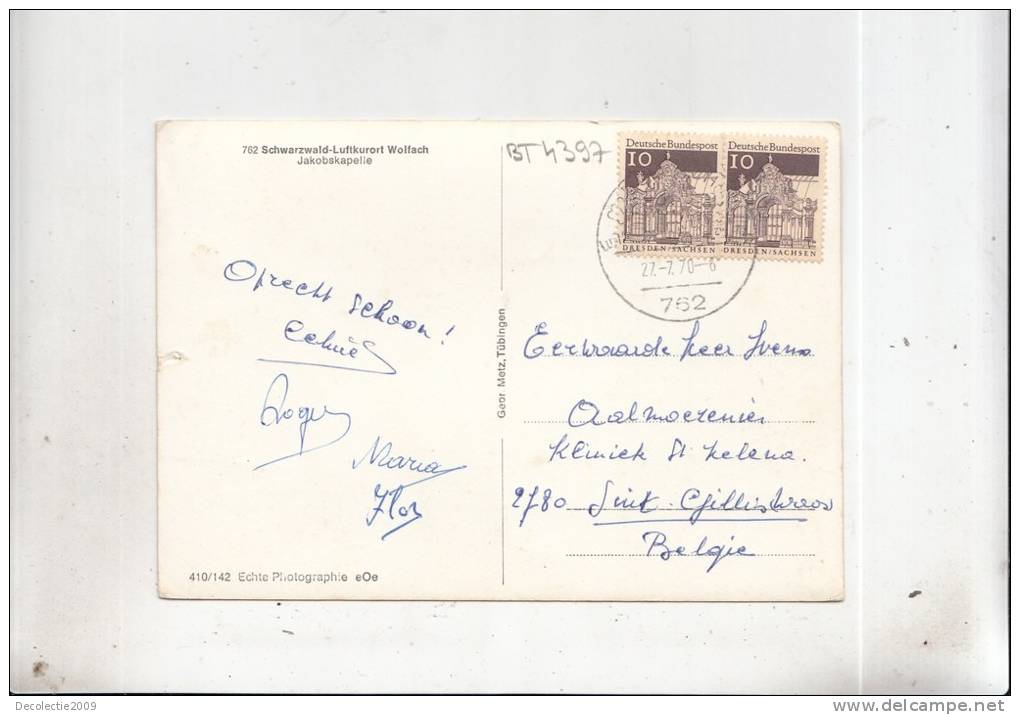 762 Schwarzwald-Luftkurort Wolfach
Jakobskapelle
BT 4397
Deutsche Bundespost
10
DRESDEN/SACHSEN
Deutsche Bundespost
10
DRESDEN/SACHSEN
27.-7.70-6
762
Oprecht schoon!
Roger
Maria
Flor
Geor Metz, Tübingen
Eerwaarde heer
Aalmoezenier
Kliniek St Helena.
2780 Sint-Gilliswaas
Belgie
410/142 Echte Photographie eOe
Decolectie2009
delcampe.net